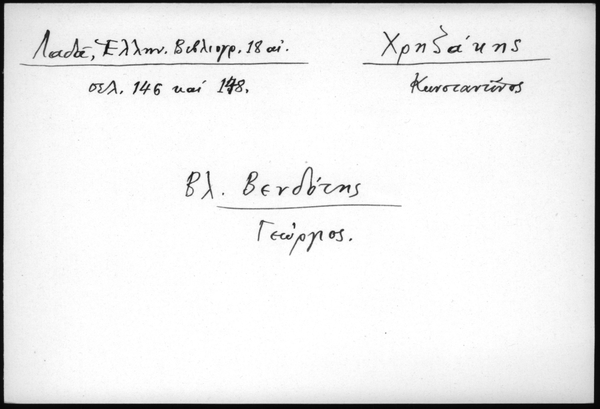 Λαδᾶ, Ἑλλην. Βιβλιογρ. 18 αἰ.
σελ. 146 καί 148.
Χρηζάκης
Κωνσταντῖνος
Βλ. Βενδότης
Γεώργιος.